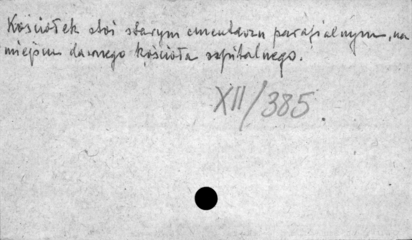 Kościółek stoi starym cmentarzu parafialnym, na
miejscu dawnego kościoła szpitalnego.
XII/385.